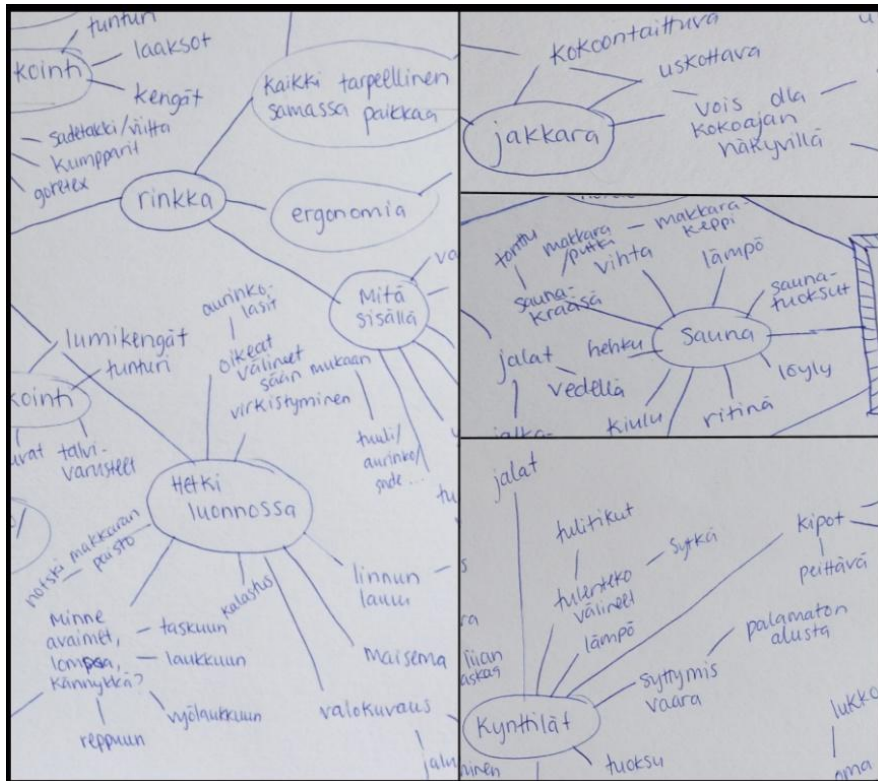 tunturi
kointi
laaksot
kengät
sadetakki/viitta
kumpparit
goretex
kaikki tarpeellinen
samassa paikkaa
rinkka
ergonomia
Mitä
sisällä
va
lumikengät
tunturi
kointi
talvi-
varusteet
aurinko-
lasit
oikeat
välineet
sään mukaan
virkistyminen
tuuli/
aurinko/
tu
Hetki
luonnossa
notski makkaran
paisto
kalastus
linnun
laulu
Minne
avaimet,
kännykkä?
taskuun
laukkuun
vyölaukkuun
reppuun
maisema
valokuvaus
kokoontaittuva
uskottava
jakkara
vois olla
kokoajan
näkyvillä
tonttu
makkara
/putki
makkara-
keppi
vihta
lämpö
sauna-
krääsä
sauna-
tuoksut
Sauna
jalat
vedellä
hehku
löyly
kiulu
ritinä
jalka-
jalat
tulitikut
sytkä
tulenteko
välineet
lämpö
kipot
peittävä
liian
palamaton
alusta
syttymis
vaara
kynttilät
tuoksu
lukko
oma